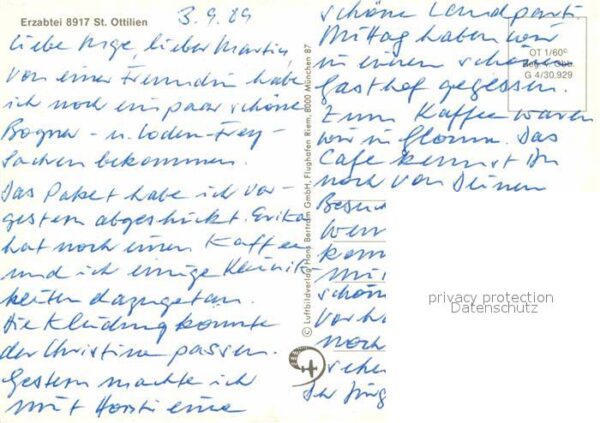 Erzabtei 8917 St. Ottilien
3.9.89
Liebe Inge, lieber Martin,
von einer Freundin habe
ich noch ein paar schöne
Bogner- u. Loden-Frey-
Sachen bekommen.
Das Paket habe ich vor-
gestern abgeschickt. Erika
hat noch einen Kaffee
und ich einige Kleinig-
keiten dazugetan.
Die Kleidung könnte
der Christine passen.
Gestern machte ich
mit Horsti eine
© Luftbildverlag Hans Bertram GmbH, Flughafen Riem, 8000 München 87
schöne Landparti
Mittag haben wir
in einem schönen
Gasthof gegessen.
Zum Kaffee waren
wir in Glonn. Das
Cafe kennst Du
noch von Deinen
Besuch
Wenn
kom
mi
schön
vorh
noch
sehe
Ihr Jürg
OT 1/60c
Reg. v. Obb.
G 4/30.929
privacy protection
Datenschutz